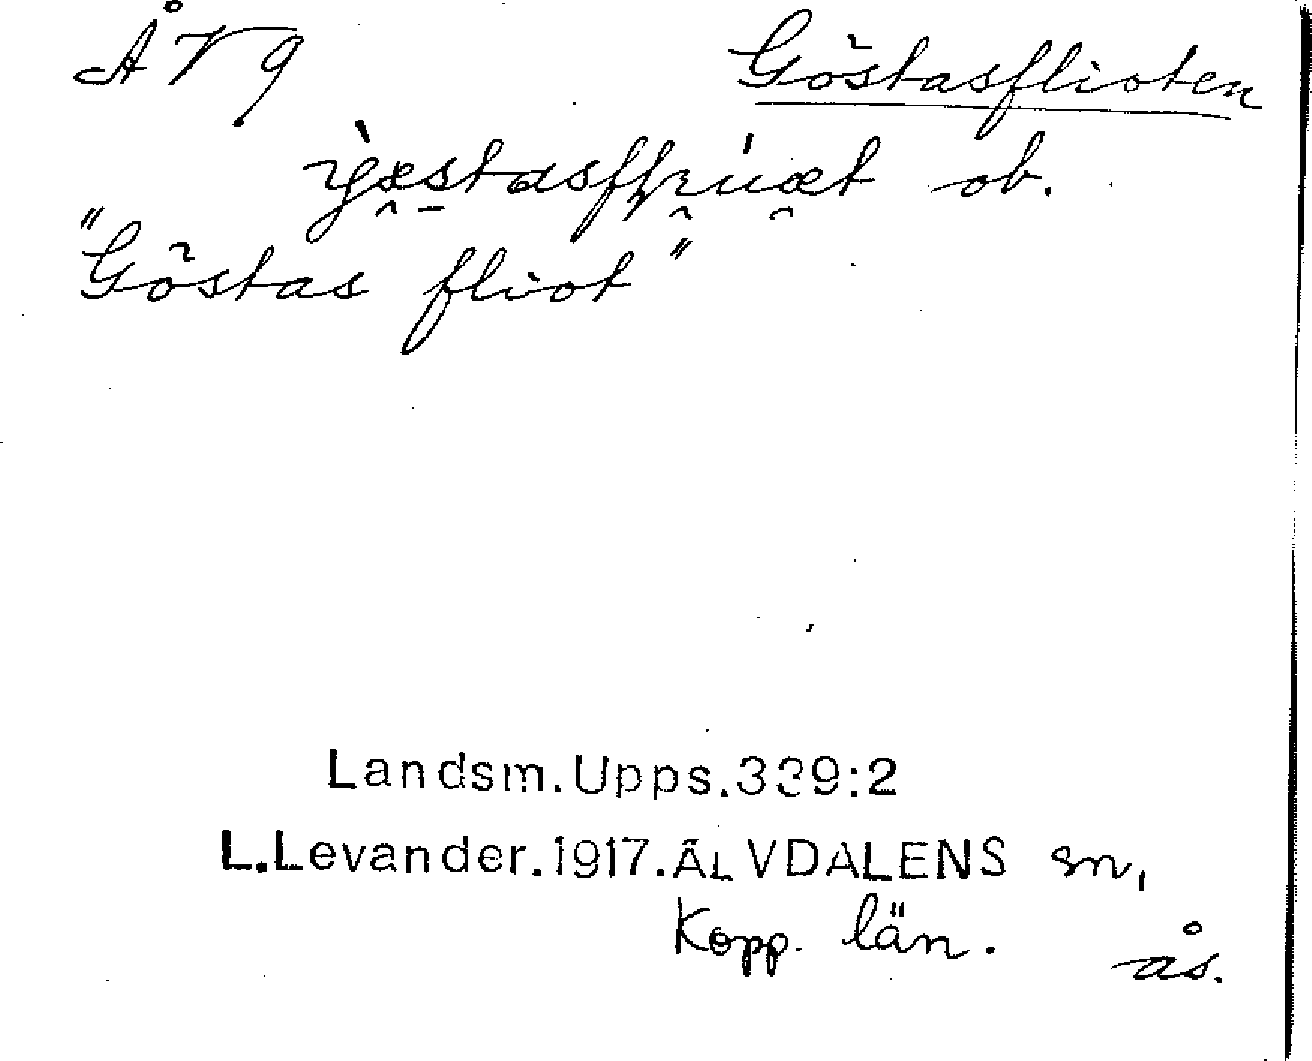 ÅV9 Göstasflioten
ob.
"Göstas fliot"
Landsm.Upps.339:2
L.Levander.1917.ÄLVDALENS sn,
Kopp. län. ås.